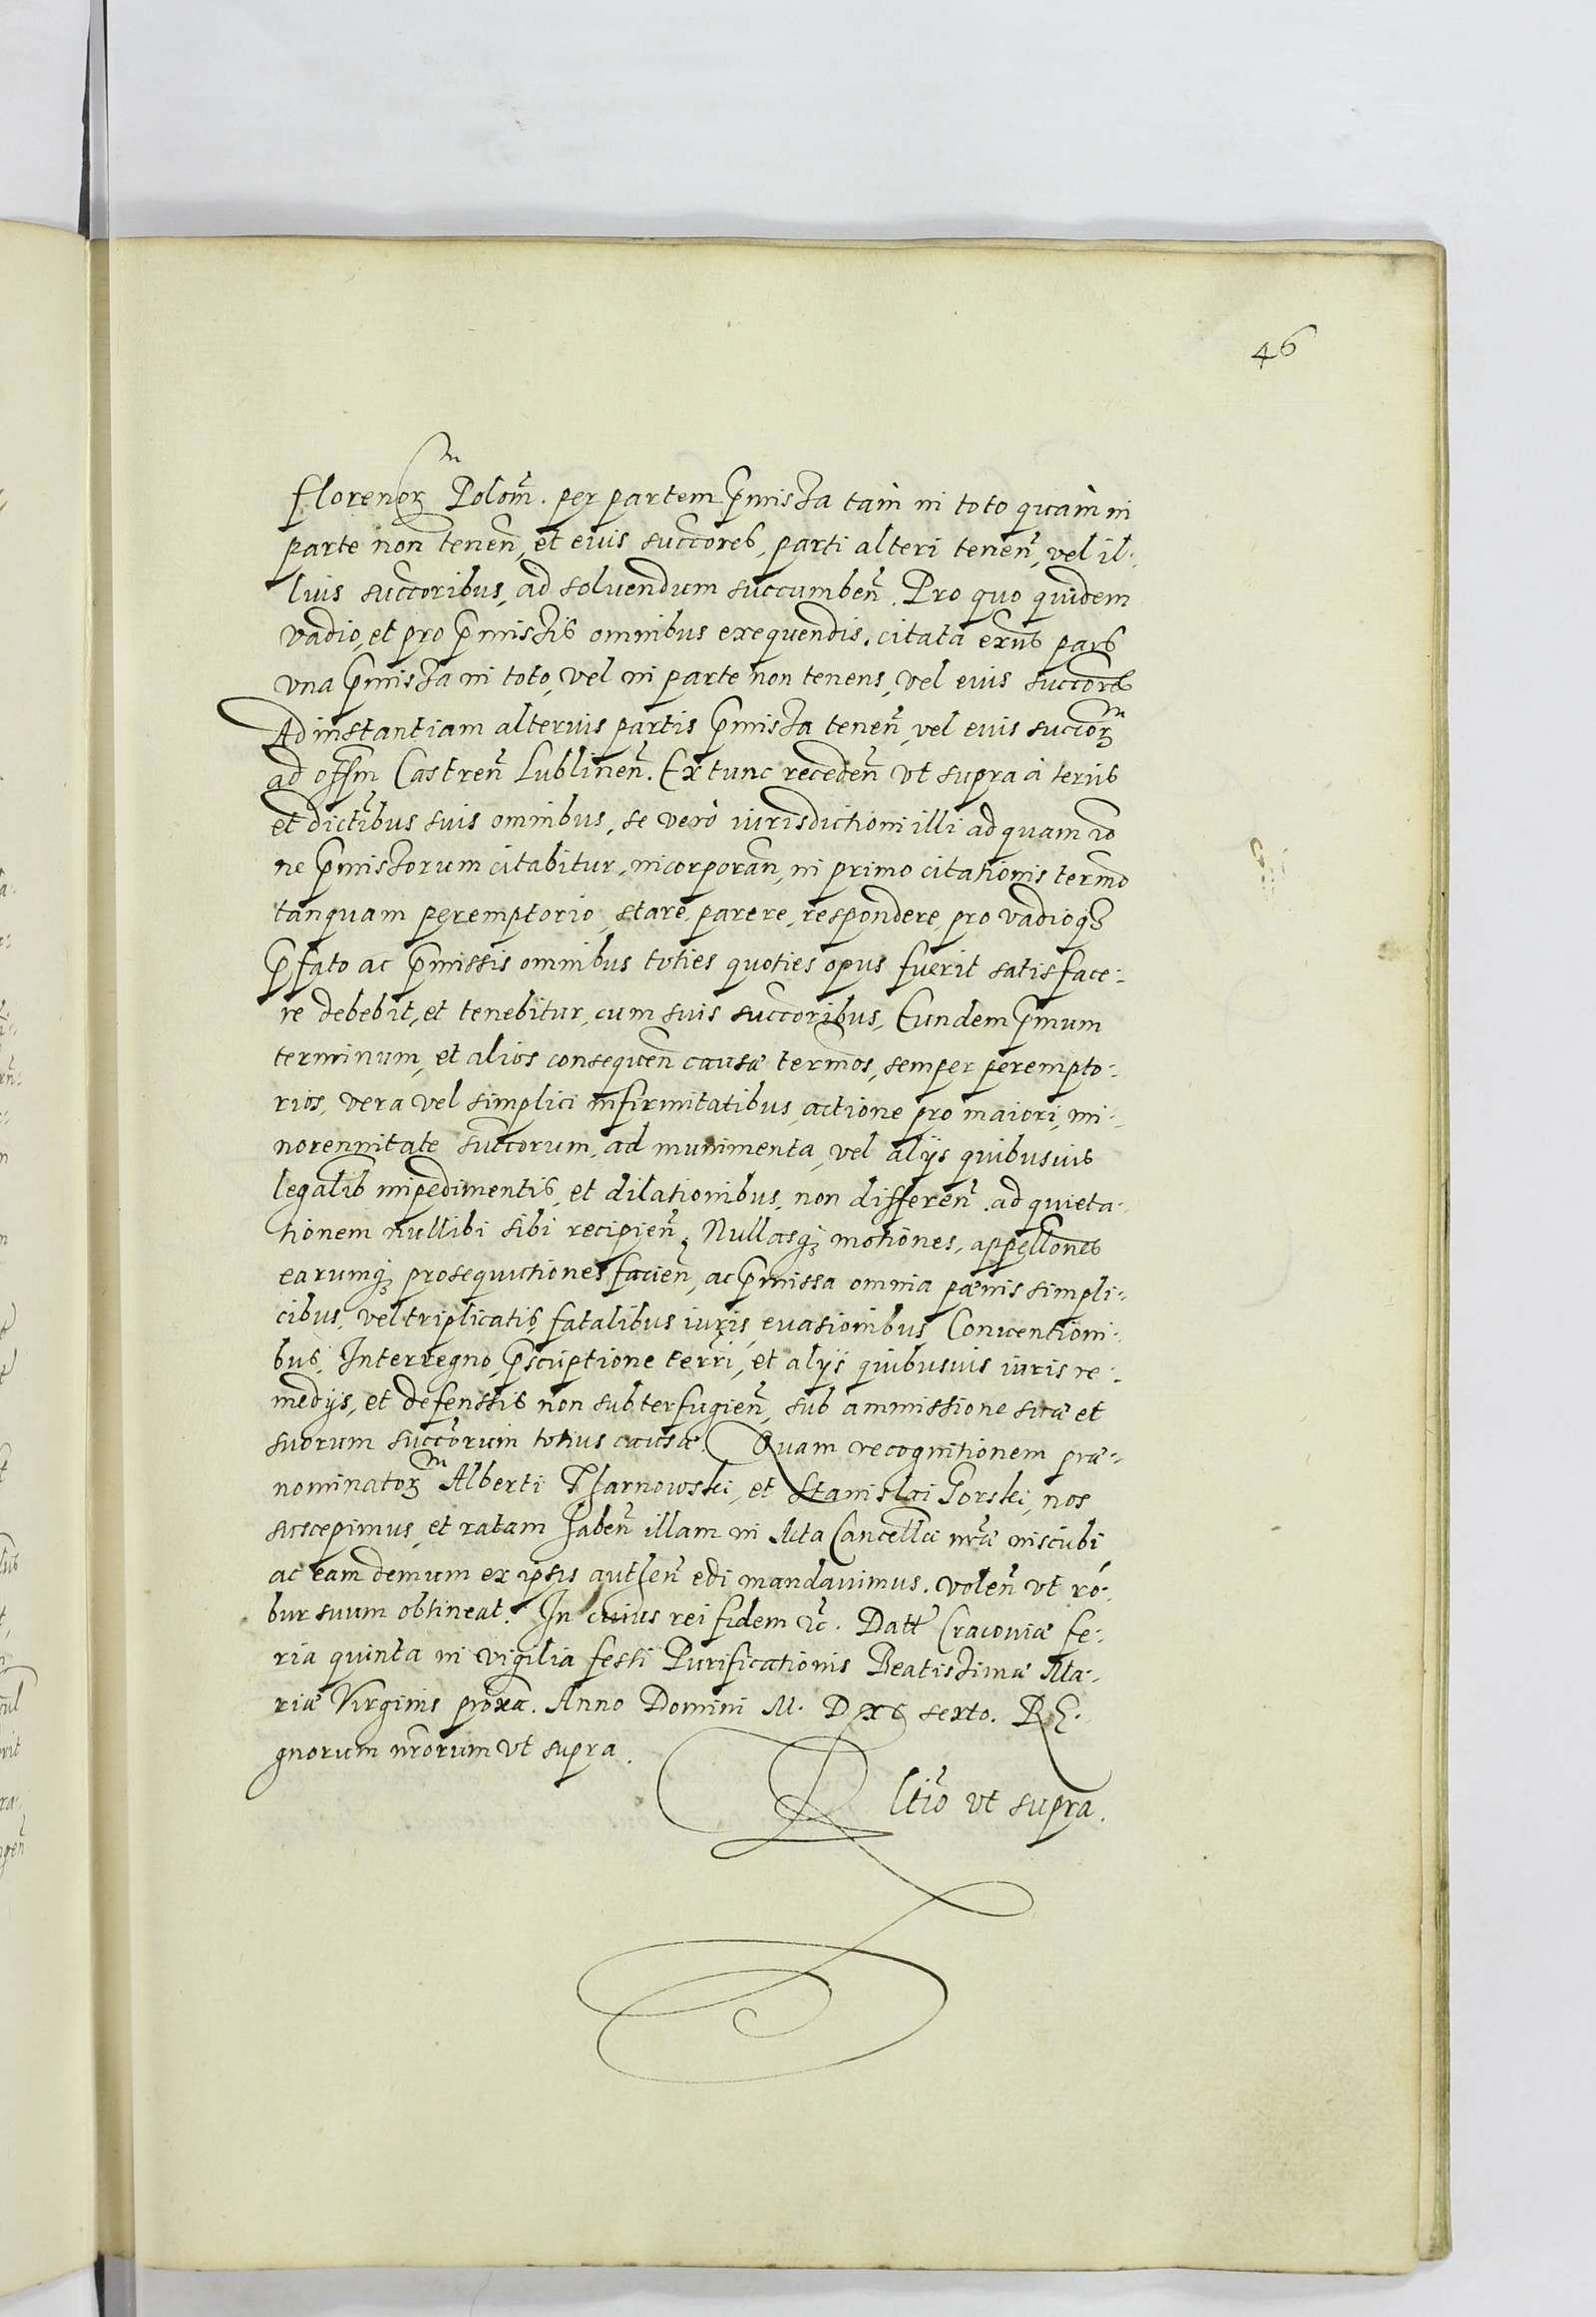 46
florenoꝝ Polon̄. per partem p̄missa tàm in toto quàm in
parte non tenen̄, et eius succores, parti alteri tenen̄, vel il-
lius succoribus, ad soluendum succumben̄. Pro quo quidem
vadio, et pro p̄missis omnibus exequendis. citata exn̄s pars
vna p̄missa in toto, vel in parte non tenens, vel eius succores
Ad instantiam alterius partis p̄missa tenen̄, vel eius succoꝝ
ad offm̄ Castren̄ Lublinen̄. Ex tunc receden̄ vt supra à terris
et dictibus suis omnibus, se verò iurisdictioni illi ad quam rō
ne p̄missorum citabitur, incorporan̄, in primo citationis termō
tanquam peremptorio, stare, parere, respondere, pro vadioqꝫ
p̄fato ac p̄missis omnibus toties quoties opus fuerit satisface-
re debebit, et tenebitur, cum suis succoribus, Eundem p̄mum
terminum, et alios consequen̄ causæ termos, semper perempto-
rios, vera vel simplici infirmitatibus, actione pro maiori, mi-
norennitate succorum, ad munimenta, vel alijs quibusuis
legalib impedimentis, et dilationibus, non differen̄. ad quieta-
tionem nullibi sibi recipien̄, Nullasqꝫ motiones, appellones
earumqꝫ prosequutiones facien̄, ac p̄missa omnia pænis simpli-
cibus, vel triplicatis, fatalibus iuris, euasionibus, Conuentioni-
bus, Interregno, p̄scriptione terri, et alijs quibusuis iuris re-
medijs, et defenssis non subterfugien̄, sub ammissione suæ et
suorum succorum totius causæ. Quam recognitionem præ-
nominatoꝝ Alberti Tharnowski, et Stanislai Gorski, nos
suscepimus, et ratam haben̄ illam in Acta Cancella nr̄æ inscribi
ac eam demum ex ipsis authen̄ edi mandauimus. volen̄ vt ro-
bur suum obtineat. In cuius rei fidem ꝛc̄. Datt Cracouiæ fe-
ria quinta in vigilia festi Purificationis Beatissimæ Ma-
riæ Virginis proxa. Anno Domini M. D xc sexto. RE-
gnorum nr̄orum vt supra.
Rltio vt supra.